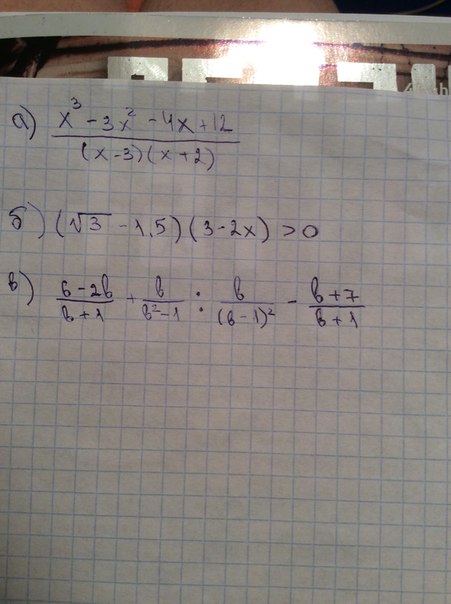 а) (x³ - 3x² - 4x + 12) / ((x-3)(x+2))
б) (√3 - 1,5)(3-2x) > 0
в) (6-2b)/(b+1) + b/(b²-1) : b/(b-1)² - (b+7)/(b+1)